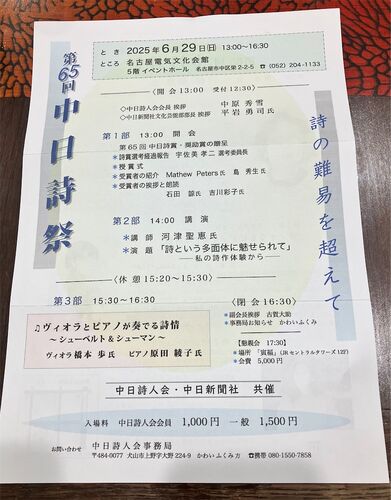 第65回 中日詩祭
詩の難易を超えて
とき 2025年6月29日(日) 13:00〜16:30
ところ 名古屋電気文化会館
5階 イベントホール 名古屋市中区栄2-2-5 ☎(052) 204-1133
〈開会13:00 受付12:30〉
◇中日詩人会会長 挨拶 中原秀雪
◇中日新聞社文化芸能部部長 挨拶 平岩勇司氏
第1部 13:00 開会
第65回中日詩賞・奨励賞の贈呈
*詩賞選考経過報告 宇佐美孝二 選考委員長
*授賞式
*受賞者の紹介 Mathew Peters氏 島 秀生氏
*受賞者の挨拶と朗読
石田 諒氏 吉川彩子氏
第2部 14:00 講演
*講師 河津聖恵氏
*演題 「詩という多面体に魅せられて」
──私の詩作体験から──
〈休憩15:20〜15:30〉
第3部 15:30〜16:30
♫ヴィオラとピアノが奏でる詩情
〜シューベルト&シューマン〜
ヴィオラ 橋本 歩氏 ピアノ 原田 綾子氏
〈閉会16:30〉
*副会長挨拶 古賀大助
*事務局お知らせ かわいふくみ
【懇親会 17:30】
*場所 「寅福」(JRセントラルタワーズ12F)
*会費 5,000円
中日詩人会・中日新聞社 共催
入場料 中日詩人会会員 1,000円 一般 1,500円
お問い合わせ 中日詩人会事務局
〒484-0077 犬山市上野字大野224-9 かわいふくみ方 ☎携帯 080-1550-7858